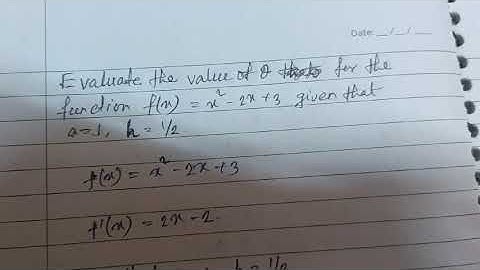 Date: __/__/__
Evaluate the value of θ for the
function f(x) = x² - 2x + 3 given that
a=1, h = 1/2
f(x) = x² - 2x + 3
f'(x) = 2x - 2.
h = 1/2